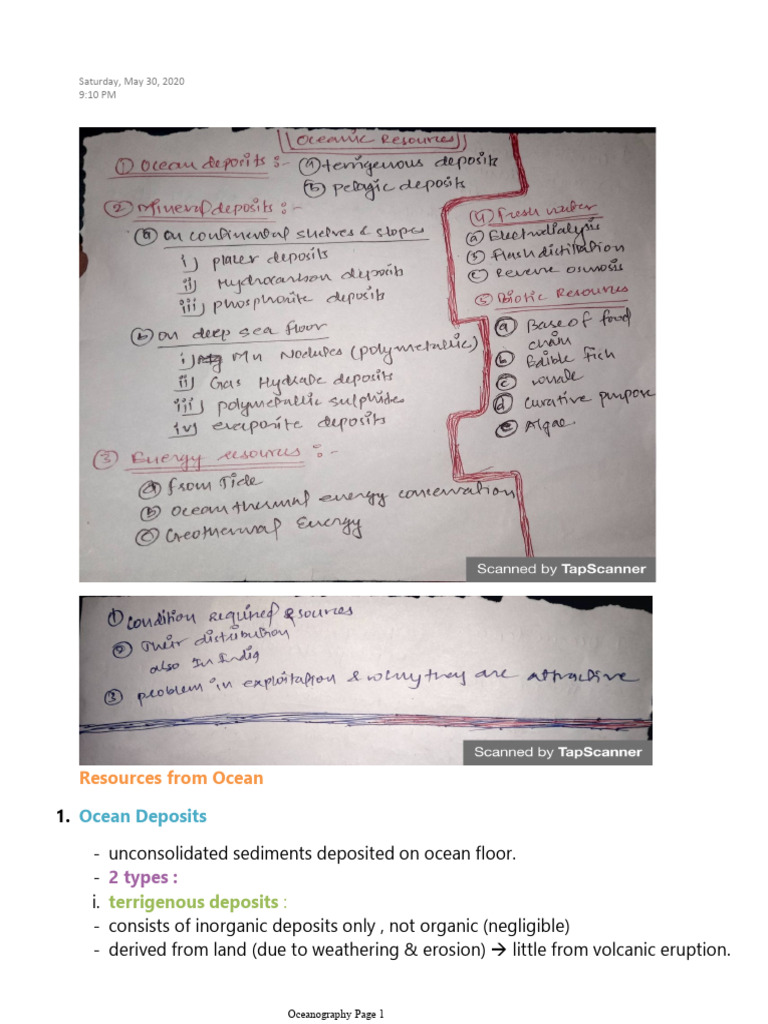 Saturday, May 30, 2020
9:10 PM
Oceanic Resources
① Ocean deposits :- ⓐ terrigenous deposits
ⓑ pelagic deposits
② Mineral deposits :-
ⓐ on continental shelves & slopes
i) placer deposits
ii) Hydrocarbon deposits
iii) phosphorite deposits
ⓑ on deep sea floor
i) Mn Nodules (polymetallic)
ii) Gas Hydrate deposits
iii) polymetallic sulphides
iv) evaporite deposits
③ Energy resources :-
ⓐ from Tide
ⓑ ocean thermal energy conservation
ⓒ Geothermal Energy
④ fresh water
ⓐ Electrodialysis
ⓑ flash distillation
ⓒ Reverse osmosis
⑤ Biotic Resources
ⓐ Base of food
chain
ⓑ Edible fish
ⓒ whale
ⓓ curative purpose
ⓔ Algae
Scanned by TapScanner
① condition Required
② Their distribution
also in India
③ problem in exploitation & why they are attractive
Scanned by TapScanner
Resources from Ocean
1. Ocean Deposits
- unconsolidated sediments deposited on ocean floor.
- 2 types :
i. terrigenous deposits :
- consists of inorganic deposits only , not organic (negligible)
- derived from land (due to weathering & erosion) → little from volcanic eruption.
Oceanography Page 1